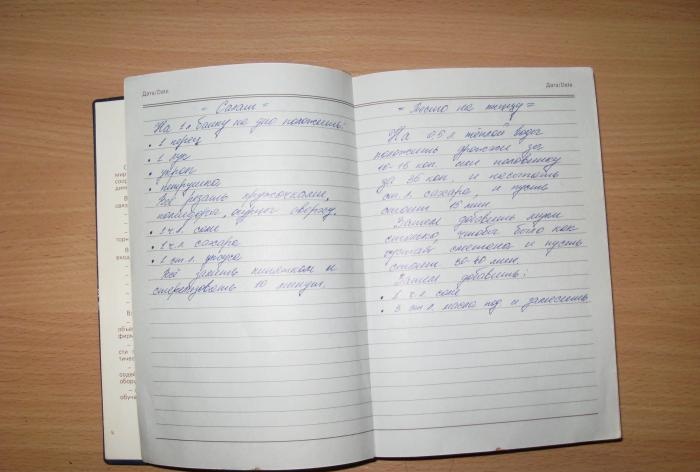 Дата/Date
= Салат =
На 1 л банку на дно положить:
• 1 перец
• 1 лук
• укроп
• петрушка
Всё резать кружочками,
помидоры, огурец сверху.
• 1 ч.л. соли
• 1 ч.л. сахара
• 1 ст.л. уксуса
Всё залить кипятком и
стерилизовать 10 минут.
Дата/Date
= Тесто на пиццу =
На 0,5 л тёплой воды
положить дрожжи за
16 коп. или половинку
за 36 коп. и
ст.л. сахара, и пусть
стоит 15 мин
Затем добавить муки
столько, чтобы было как
густая сметана и пусть
стоит 30-40 мин.
Затем добавить:
• 1 ч.л. соли
• 3 ст.л. масла под и замесить